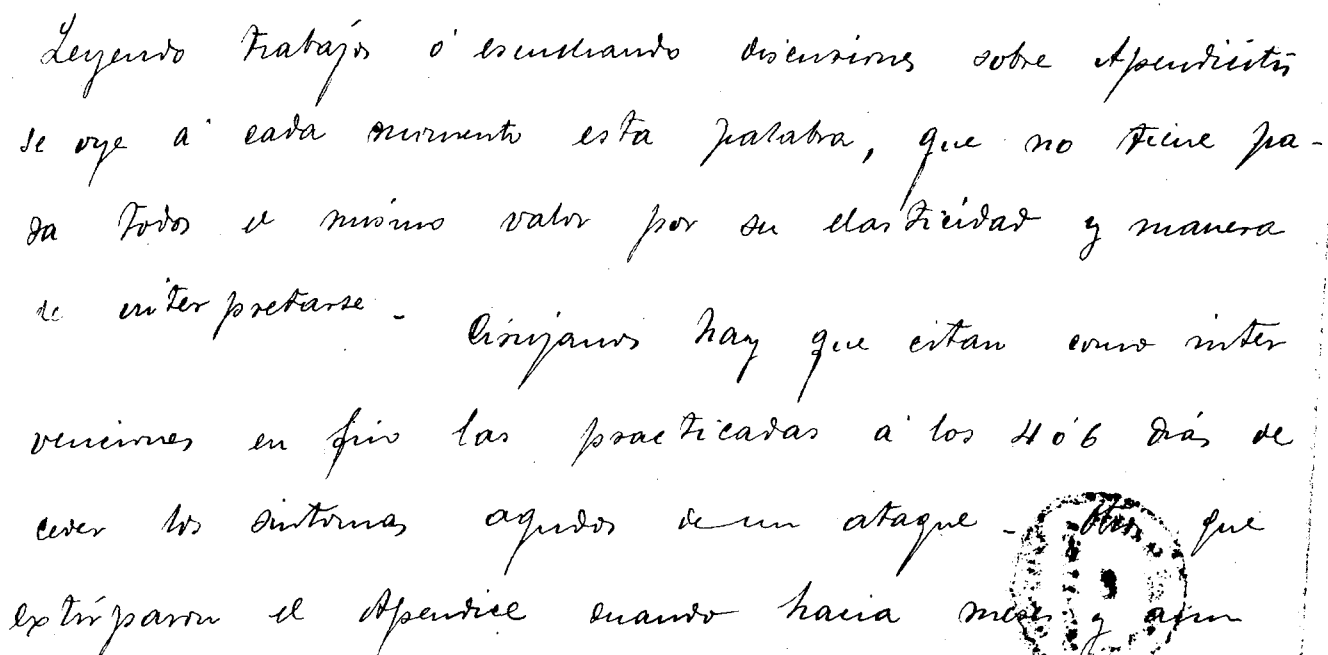 Leyendo trabajos ó escuchando discusiones sobre Apendicitis
se oye á cada momento esta palabra, que no tiene pa-
ra todos el mismo valor por su elasticidad y manera
de interpretarse - Cirujanos hay que citan como inter
venciones en frio las practicadas á los 4 ó 6 dias de
ceder los sintomas agudos de un ataque - Otros que
extirparon el Apendice cuando hacia meses y aun